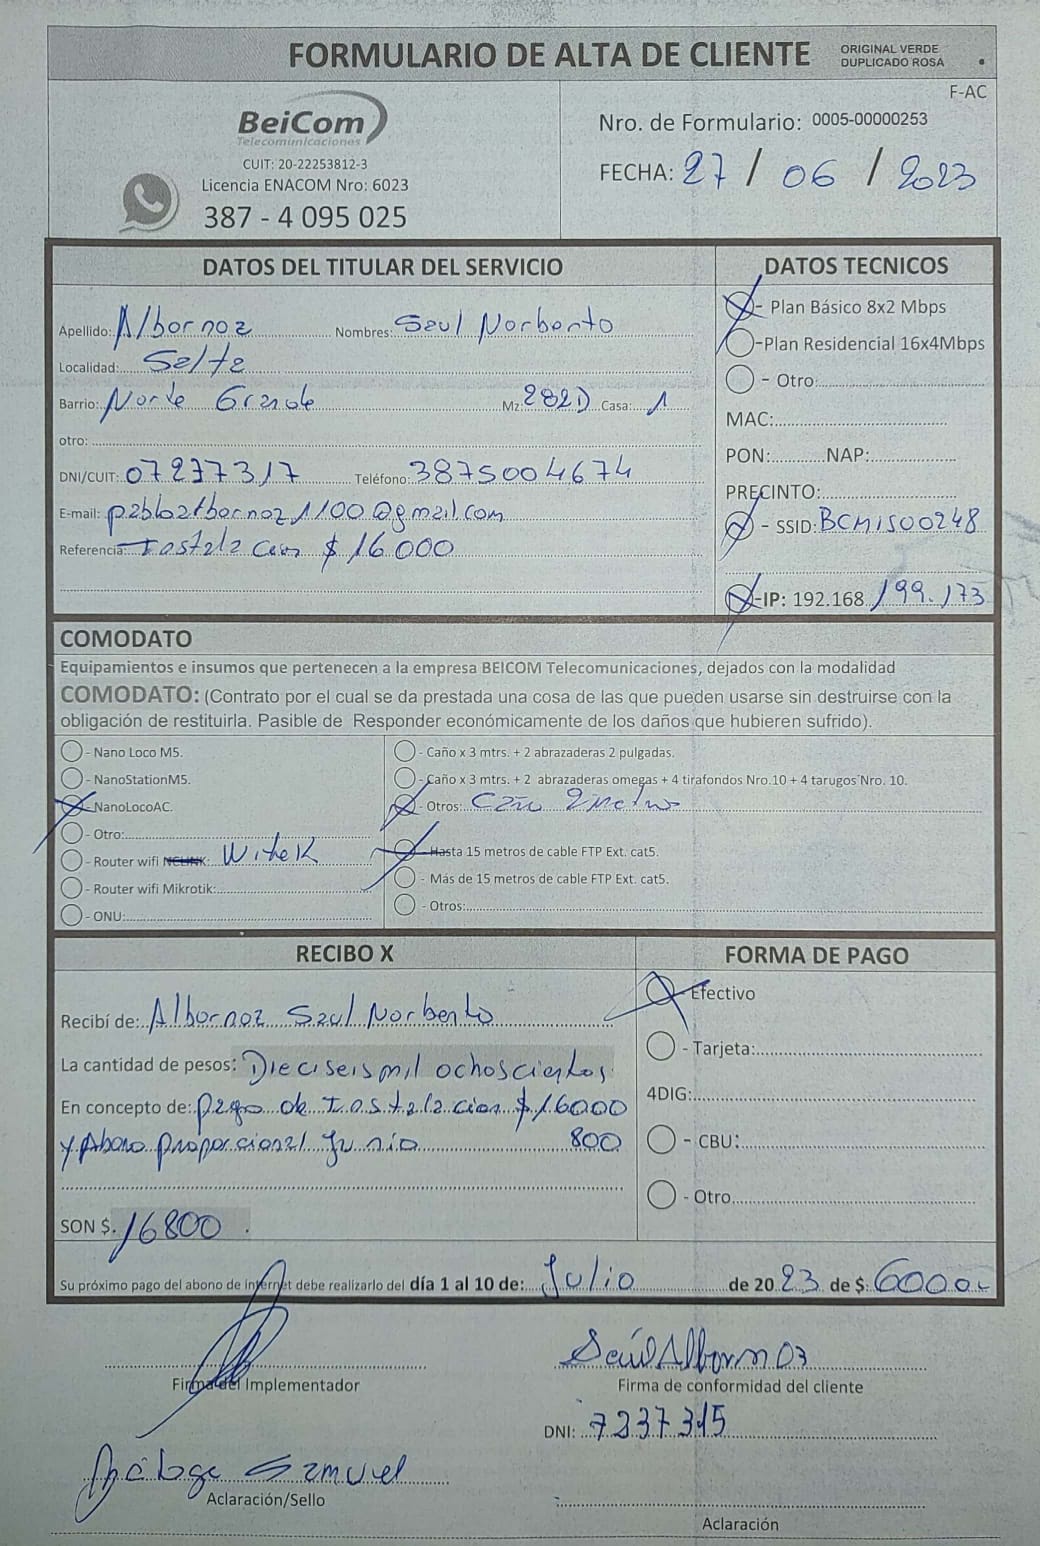 FORMULARIO DE ALTA DE CLIENTE
ORIGINAL VERDE
DUPLICADO ROSA
F-AC
BeiCom
Telecomunicaciones
CUIT: 20-22253812-3
Licencia ENACOM Nro: 6023
387 - 4 095 025
Nro. de Formulario: 0005-00000253
FECHA: 27 / 06 / 2023
DATOS DEL TITULAR DEL SERVICIO
Apellido: Albornoz Nombres: Saul Norberto
Localidad: Salta
Barrio: Norte Grande Mz: 282D Casa: 1
otro:
DNI/CUIT: 07237317 Teléfono: 3875004674
E-mail: pabloalbornoz1100@gmail.com
Referencia: Instalacion $ 16000
DATOS TECNICOS
- Plan Básico 8x2 Mbps
-Plan Residencial 16x4Mbps
- Otro:
MAC:
PON: NAP:
PRECINTO:
- SSID: BCM1S00248
-IP: 192.168 199.173
COMODATO
Equipamientos e insumos que pertenecen a la empresa BEICOM Telecomunicaciones, dejados con la modalidad
COMODATO: (Contrato por el cual se da prestada una cosa de las que pueden usarse sin destruirse con la
obligación de restituirla. Pasible de Responder económicamente de los daños que hubieren sufrido).
- Nano Loco M5.
- NanoStationM5.
-NanoLocoAC.
- Otro:
- Router wifi NCLINK: Witek
- Router wifi Mikrotik:
- ONU:
- Caño x 3 mtrs. + 2 abrazaderas 2 pulgadas.
- Caño x 3 mtrs. + 2 abrazaderas omegas + 4 tirafondos Nro.10 + 4 tarugos Nro. 10.
- Otros: Caño 2 metros
- Hasta 15 metros de cable FTP Ext. cat5.
- Más de 15 metros de cable FTP Ext. cat5.
- Otros:
RECIBO X
Recibí de: Albornoz Saul Norberto
La cantidad de pesos: Dieciseis mil ochoscientos
En concepto de: pago de Instalacion $ 16000
y Abono proporcional Junio 800
SON $. 16800
FORMA DE PAGO
- Efectivo
- Tarjeta:
4DIG:
- CBU:
- Otro
Su próximo pago del abono de internet debe realizarlo del día 1 al 10 de: Julio de 20 23 de $: 6000.-
Firma del Implementador
Saúl Albornoz
Firma de conformidad del cliente
DNI: 7237315
Samuel
Aclaración/Sello
Aclaración